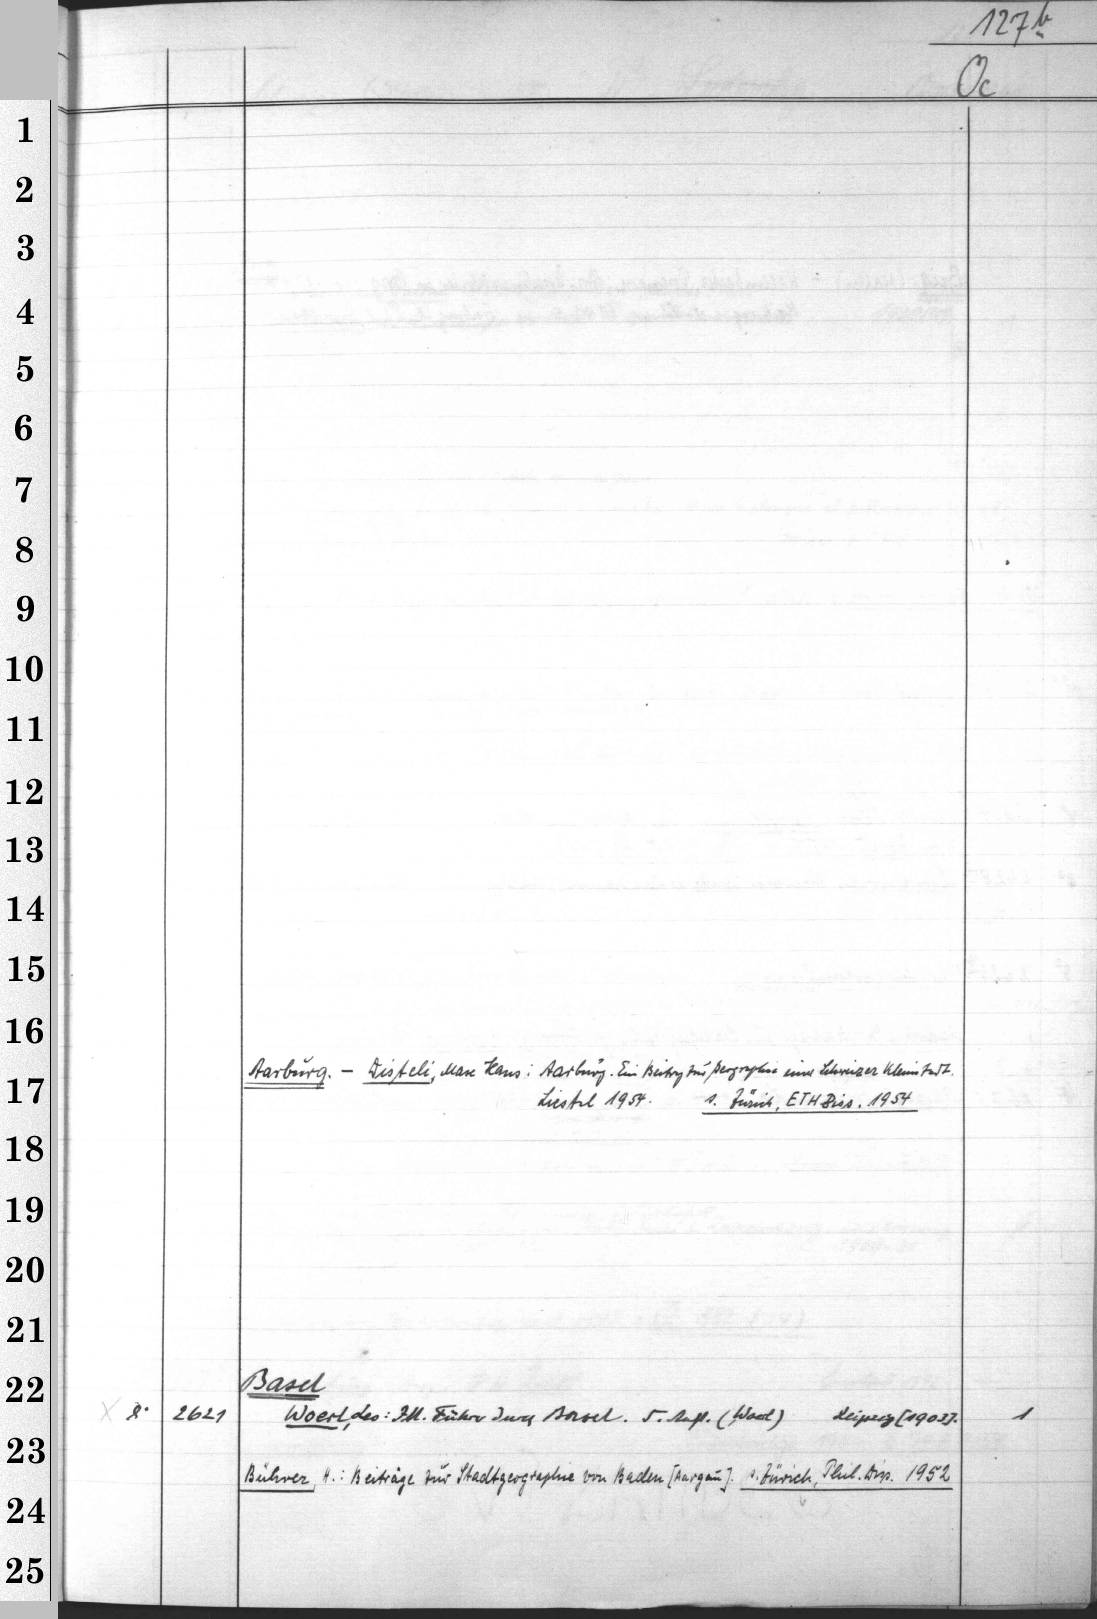 127b
Oc
1
2
3
4
5
6
7
8
9
10
11
12
13
14
15
16
Aarburg. — Disteli, Max Hans: Aarburg. Ein Beitrag zur Geographie einer Schweizer Kleinstadt.
17
Liestal 1954. s. Zürich, ETH Diss. 1954
18
19
20
21
22
Basel
X 8° 2621 Woerl, Leo: Ill. Führer durch Basel. 5. Aufl. (Woerl) Leipzig [1903]. 1
23
Bührer, H.: Beiträge zur Stadtgeographie von Baden [Aargau]. s. Zürich, Phil. Diss. 1952
24
25